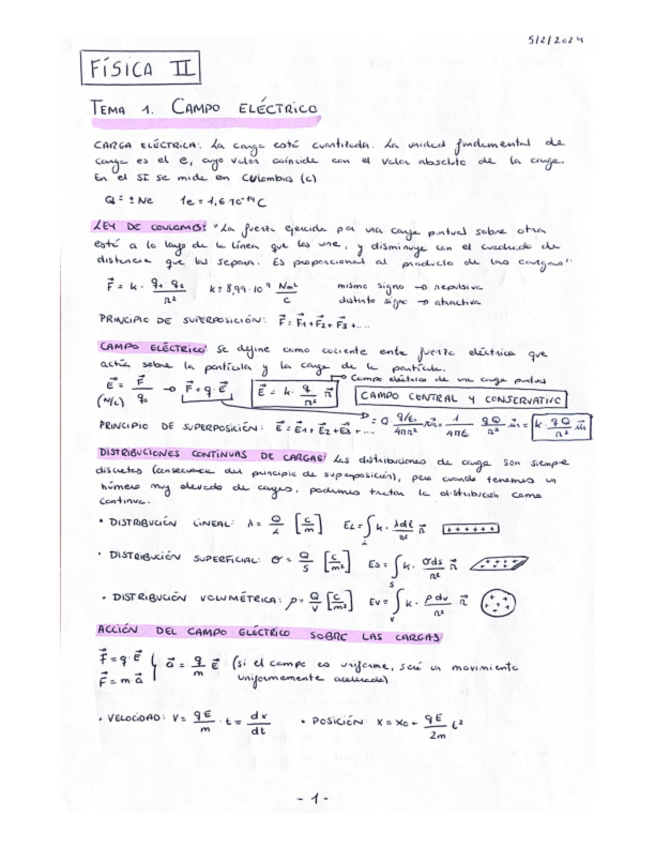 5/2/2024
FÍSICA II
TEMA 1. CAMPO ELÉCTRICO
CARGA ELÉCTRICA: La carga está cuantizada. La unidad fundamental de
carga es el e, cuyo valor coincide con el valor absoluto de la carga.
En el SI se mide en Culombios (C)
Q = ± Ne 1e = 1,6·10⁻¹⁹ C
LEY DE COULOMB: "La fuerza ejercida por una carga puntual sobre otra
está a lo largo de la línea que las une, y disminuye con el cuadrado de
distancia que las separa. Es proporcional al producto de las cargas"
F⃗ = k · q₁ · q₂ / r² k = 8,99·10⁹ Nm²/C mismo signo → repulsiva
distinto signo → atractiva
PRINCIPIO DE SUPERPOSICIÓN: F⃗ = F⃗₁ + F⃗₂ + F⃗₃ + ....
CAMPO ELÉCTRICO: Se define como cociente entre fuerza eléctrica que
actúa sobre la partícula y la carga de la partícula.
→ Campo eléctrico de una carga puntual
E⃗ = F⃗ / q₀ → F⃗ = q · E⃗ E⃗ = k · q / r² r⃗ CAMPO CENTRAL Y CONSERVATIVO
(N/C)
PRINCIPIO DE SUPERPOSICIÓN: E⃗ = E⃗₁ + E⃗₂ + E⃗₃ + ... = Q q/ε₀ / 4πr² u⃗r = 1 / 4πε₀ qQ / r² u⃗r = k · qQ / r² u⃗r
DISTRIBUCIONES CONTINUAS DE CARGAS: Las distribuciones de carga son siempre
discretas (consecuencia del principio de superposición), pero cuando tenemos un
número muy elevado de cargas, podemos tratar la distribución como
continua.
• DISTRIBUCIÓN LINEAL: λ = Q / L [C/m] EL = ∫L k · λdl / r² r⃗ + + + + + +
• DISTRIBUCIÓN SUPERFICIAL: σ = Q / S [C/m²] ES = ∫S k · σds / r² r⃗
• DISTRIBUCIÓN VOLUMÉTRICA: ρ = Q / V [C/m³] EV = ∫V k · ρdv / r² r⃗
ACCIÓN DEL CAMPO ELÉCTRICO SOBRE LAS CARGAS
F⃗ = q · E⃗ a⃗ = q / m E⃗ (si el campo es uniforme, será un movimiento
F⃗ = m · a⃗ uniformemente acelerado)
• VELOCIDAD: V = qE / m · t = dx / dt • POSICIÓN: X = X₀ + qE / 2m t²
- 1 -